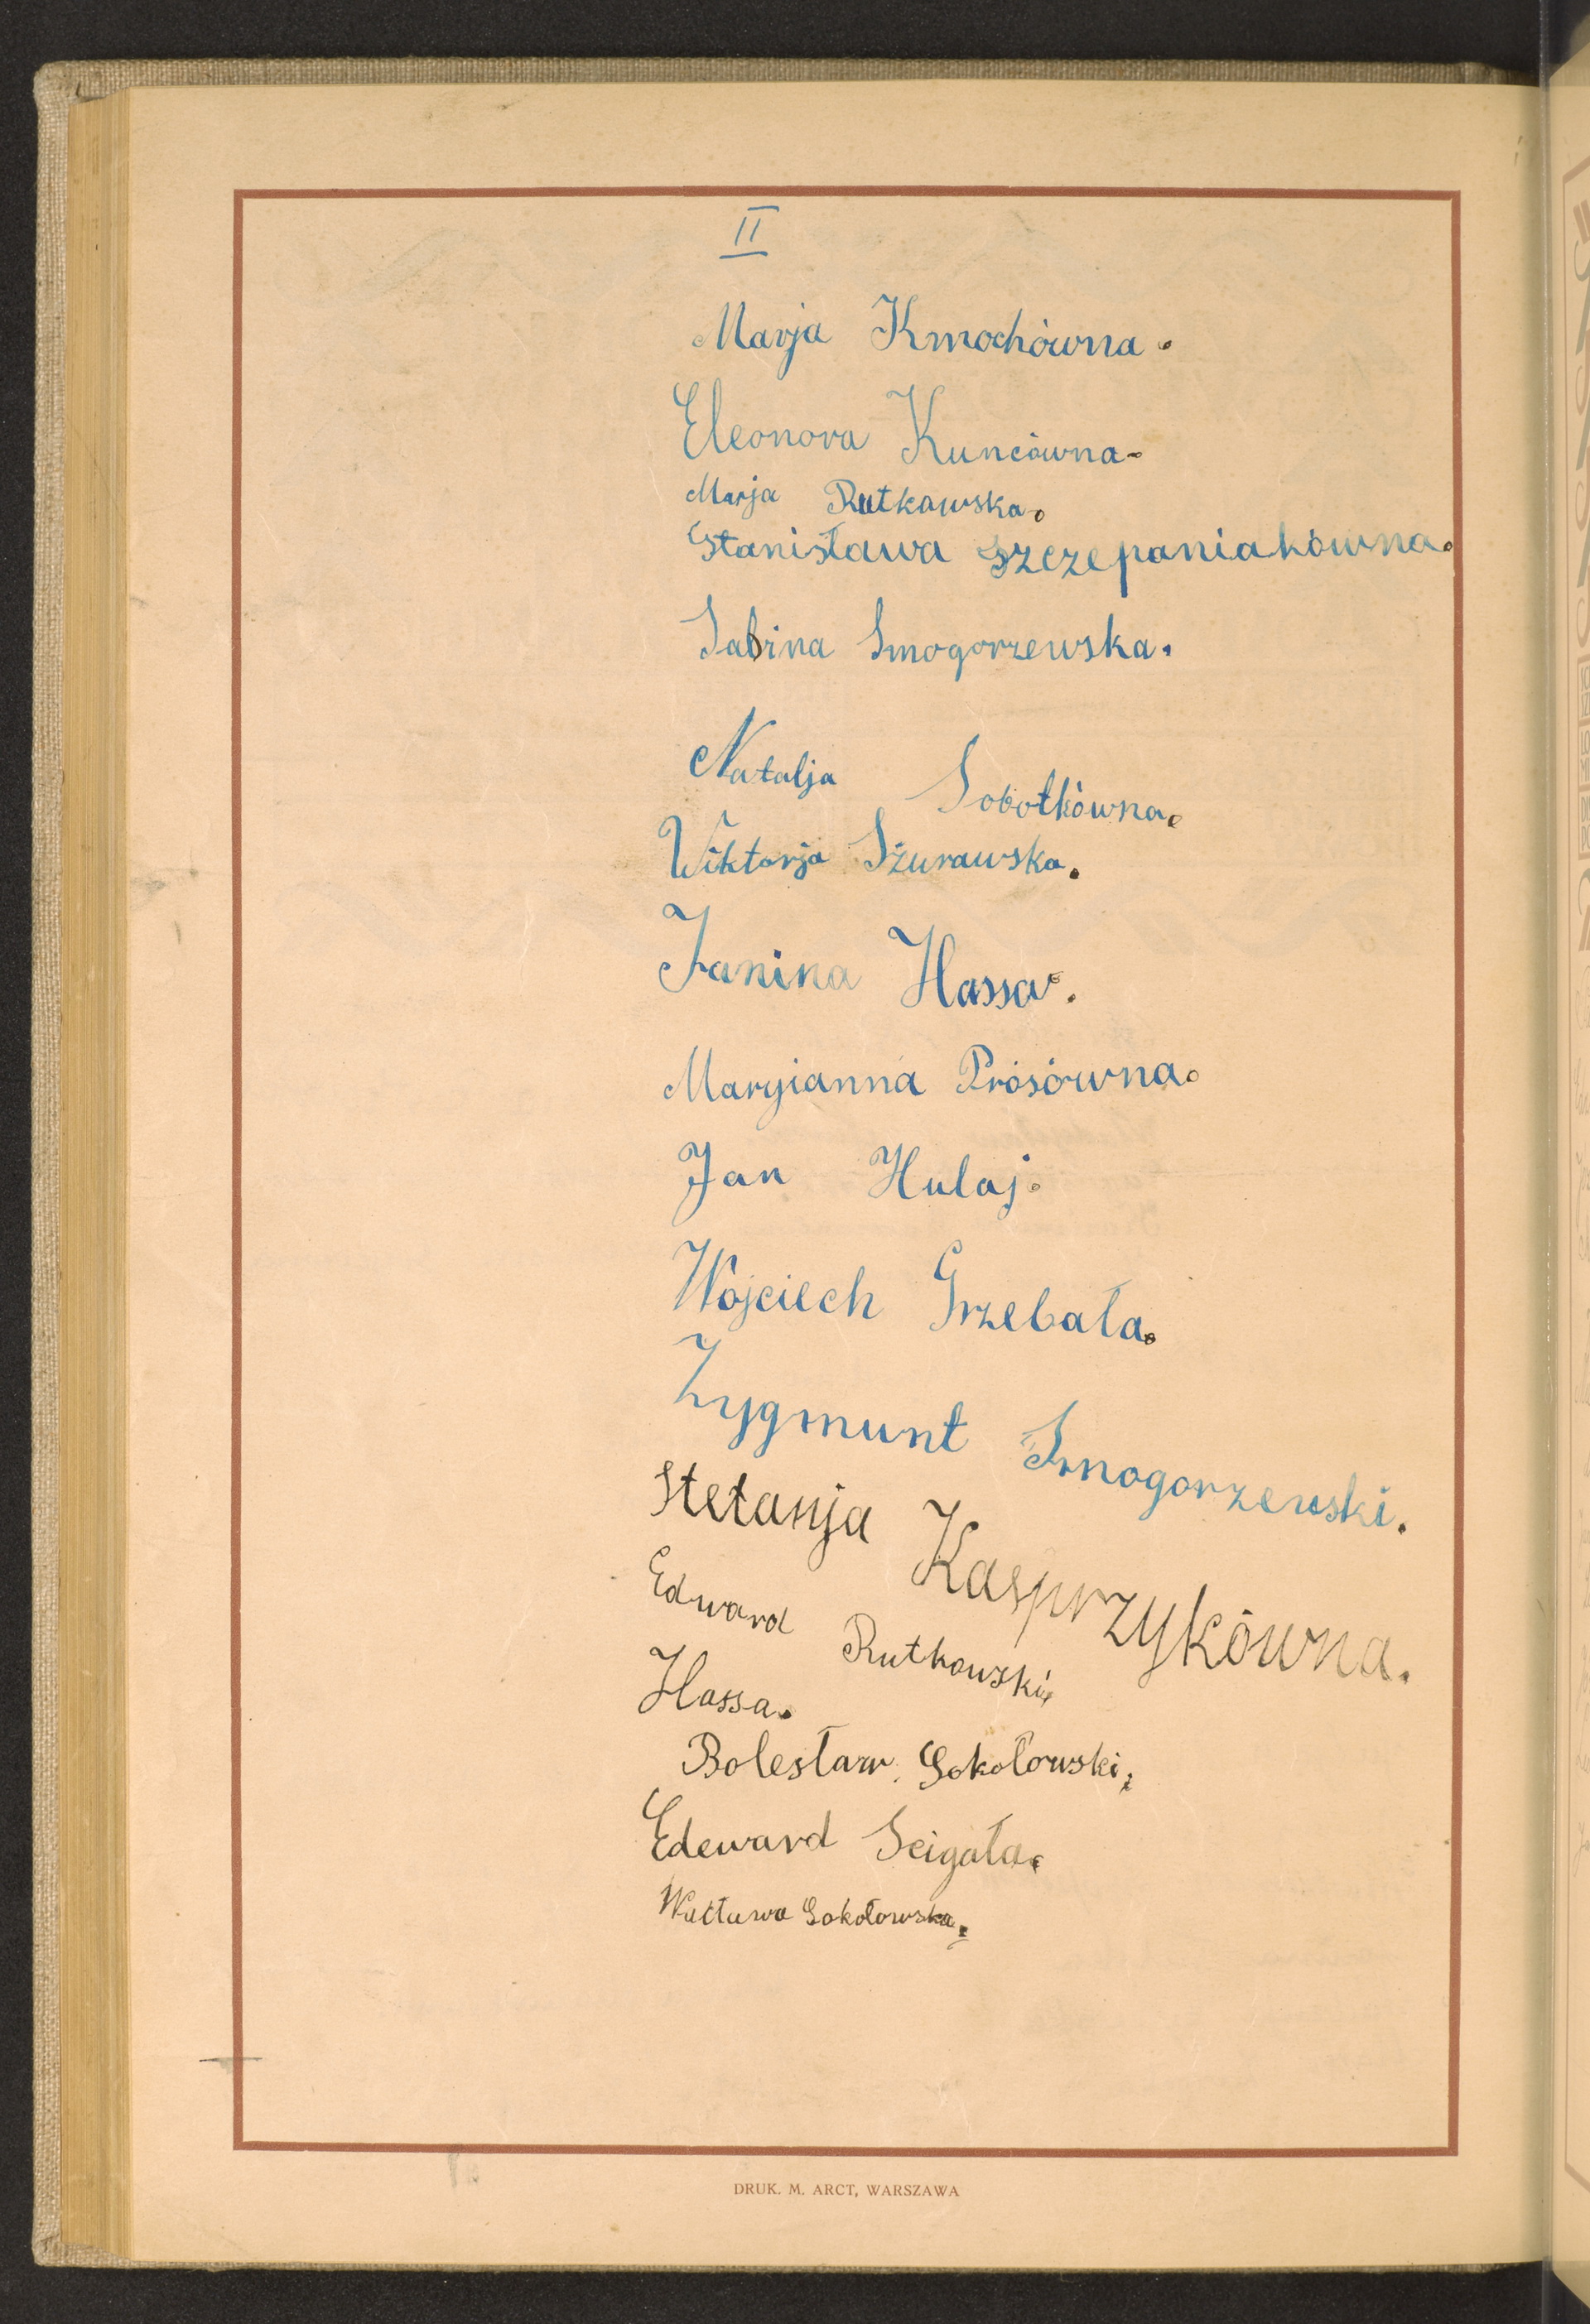 II
Marja Kmochówna.
Eleonora Kuncówna.
Marja Rutkowska.
Stanisława Szczepaniakówna.
Sabina Smogorzewska.
Natalja Sobotkówna.
Wiktorja Szurawska.
Janina Hassa.
Maryianna Prósówna.
Jan Hulaj.
Wojciech Grzebała.
Zygmunt Smogorzewski.
Stefanja Kasprzykówna.
Edward Rutkowski
Hassa.
Bolesław Sokołowski.
Edeward Scigała.
Wacława Sokołowska.
DRUK. M. ARCT, WARSZAWA